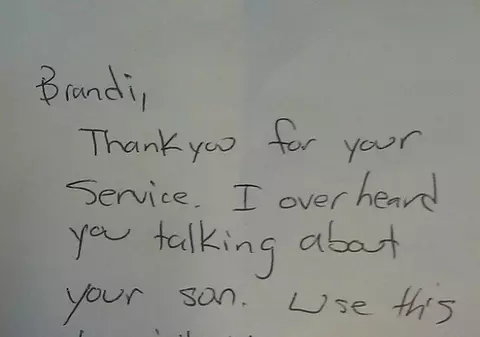 Brandi,
Thank you for your
Service. I overheard
you talking about
your son. Use this